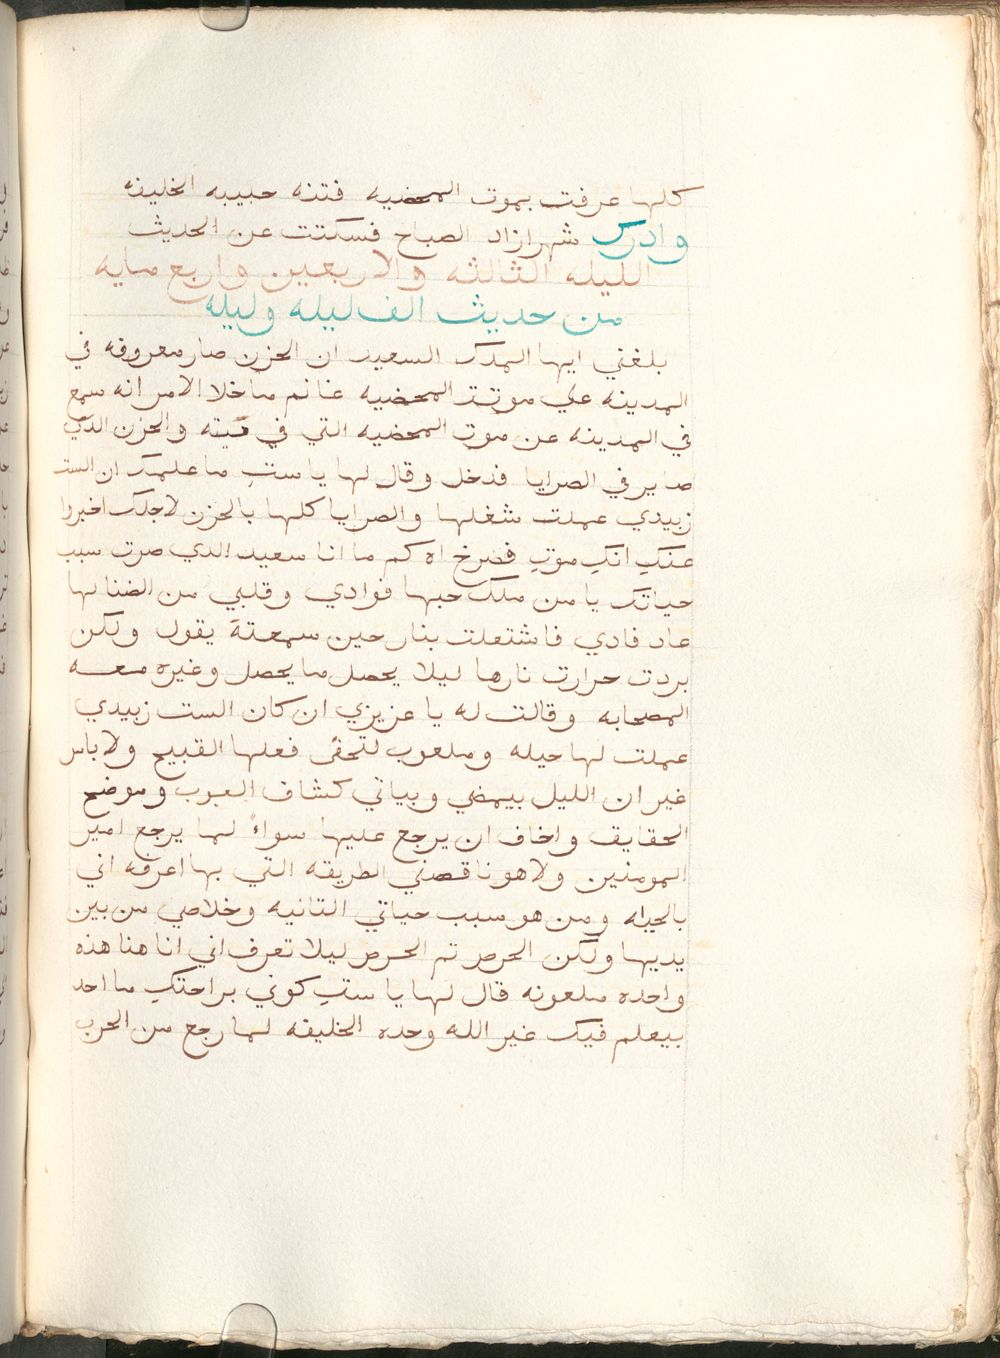 كلها عرفت بموت المحضيه فتنه حبيبه الخليفه
وادرك شهرازاد الصباح فسكتت عن الحديث
الليله الثالثه والاربعين واربع مايه
من حديث الف ليله وليله
بلغني ايها الملك السعيد ان الحزن صار معروفه في
المدينه علي موتت المحضيه غانم ماخلا الامر انه سمع
في المدينه عن موت المحضيه التي في بيته والحزن الذي
صاير في الصرايا فدخل وقال لها يا ستِ ما علمك ان الست
زبيدي عملت شغلها والصرايا كلها بالحزن لاجلك اخبروا
عنكِ انكِ موتِ فصرخ اه كم ما انا سعيد الذي صرت سبب
حياتك يا من ملك حبها فوادي وقلبي من الضنا لها
عاد فادي فاشتعلت بنار حين سمعتة يقول ولكن
بردت حرارت نارها ليلا يحصل ما يحصل وغيره معه
المصحابه وقالت له يا عزيزي ان كان الست زبيدي
عملت لها حيله وملعوب لتخفى فعلها القبيح ولا باس
غير ان الليل بيمضي وبياتي كشاف العيوب وموضح
الحقايق واخاف ان يرجع عليها سواءً لما يرجع امير
المومنين ولا هو ناقصني الطريقه التي بها اعرفه اني
بالحياه ومن هو سبب حياتي الثانيه وخلاصي من بين
يديها ولكن الحرص ثم الحرص ليلا تعرف اني انا هنا هذه
واحده ملعونه قال لها يا ستِ كوني براحتكِ ما احد
بيعلم فيك غير الله وحده الخليفه لما رجع من الحرب